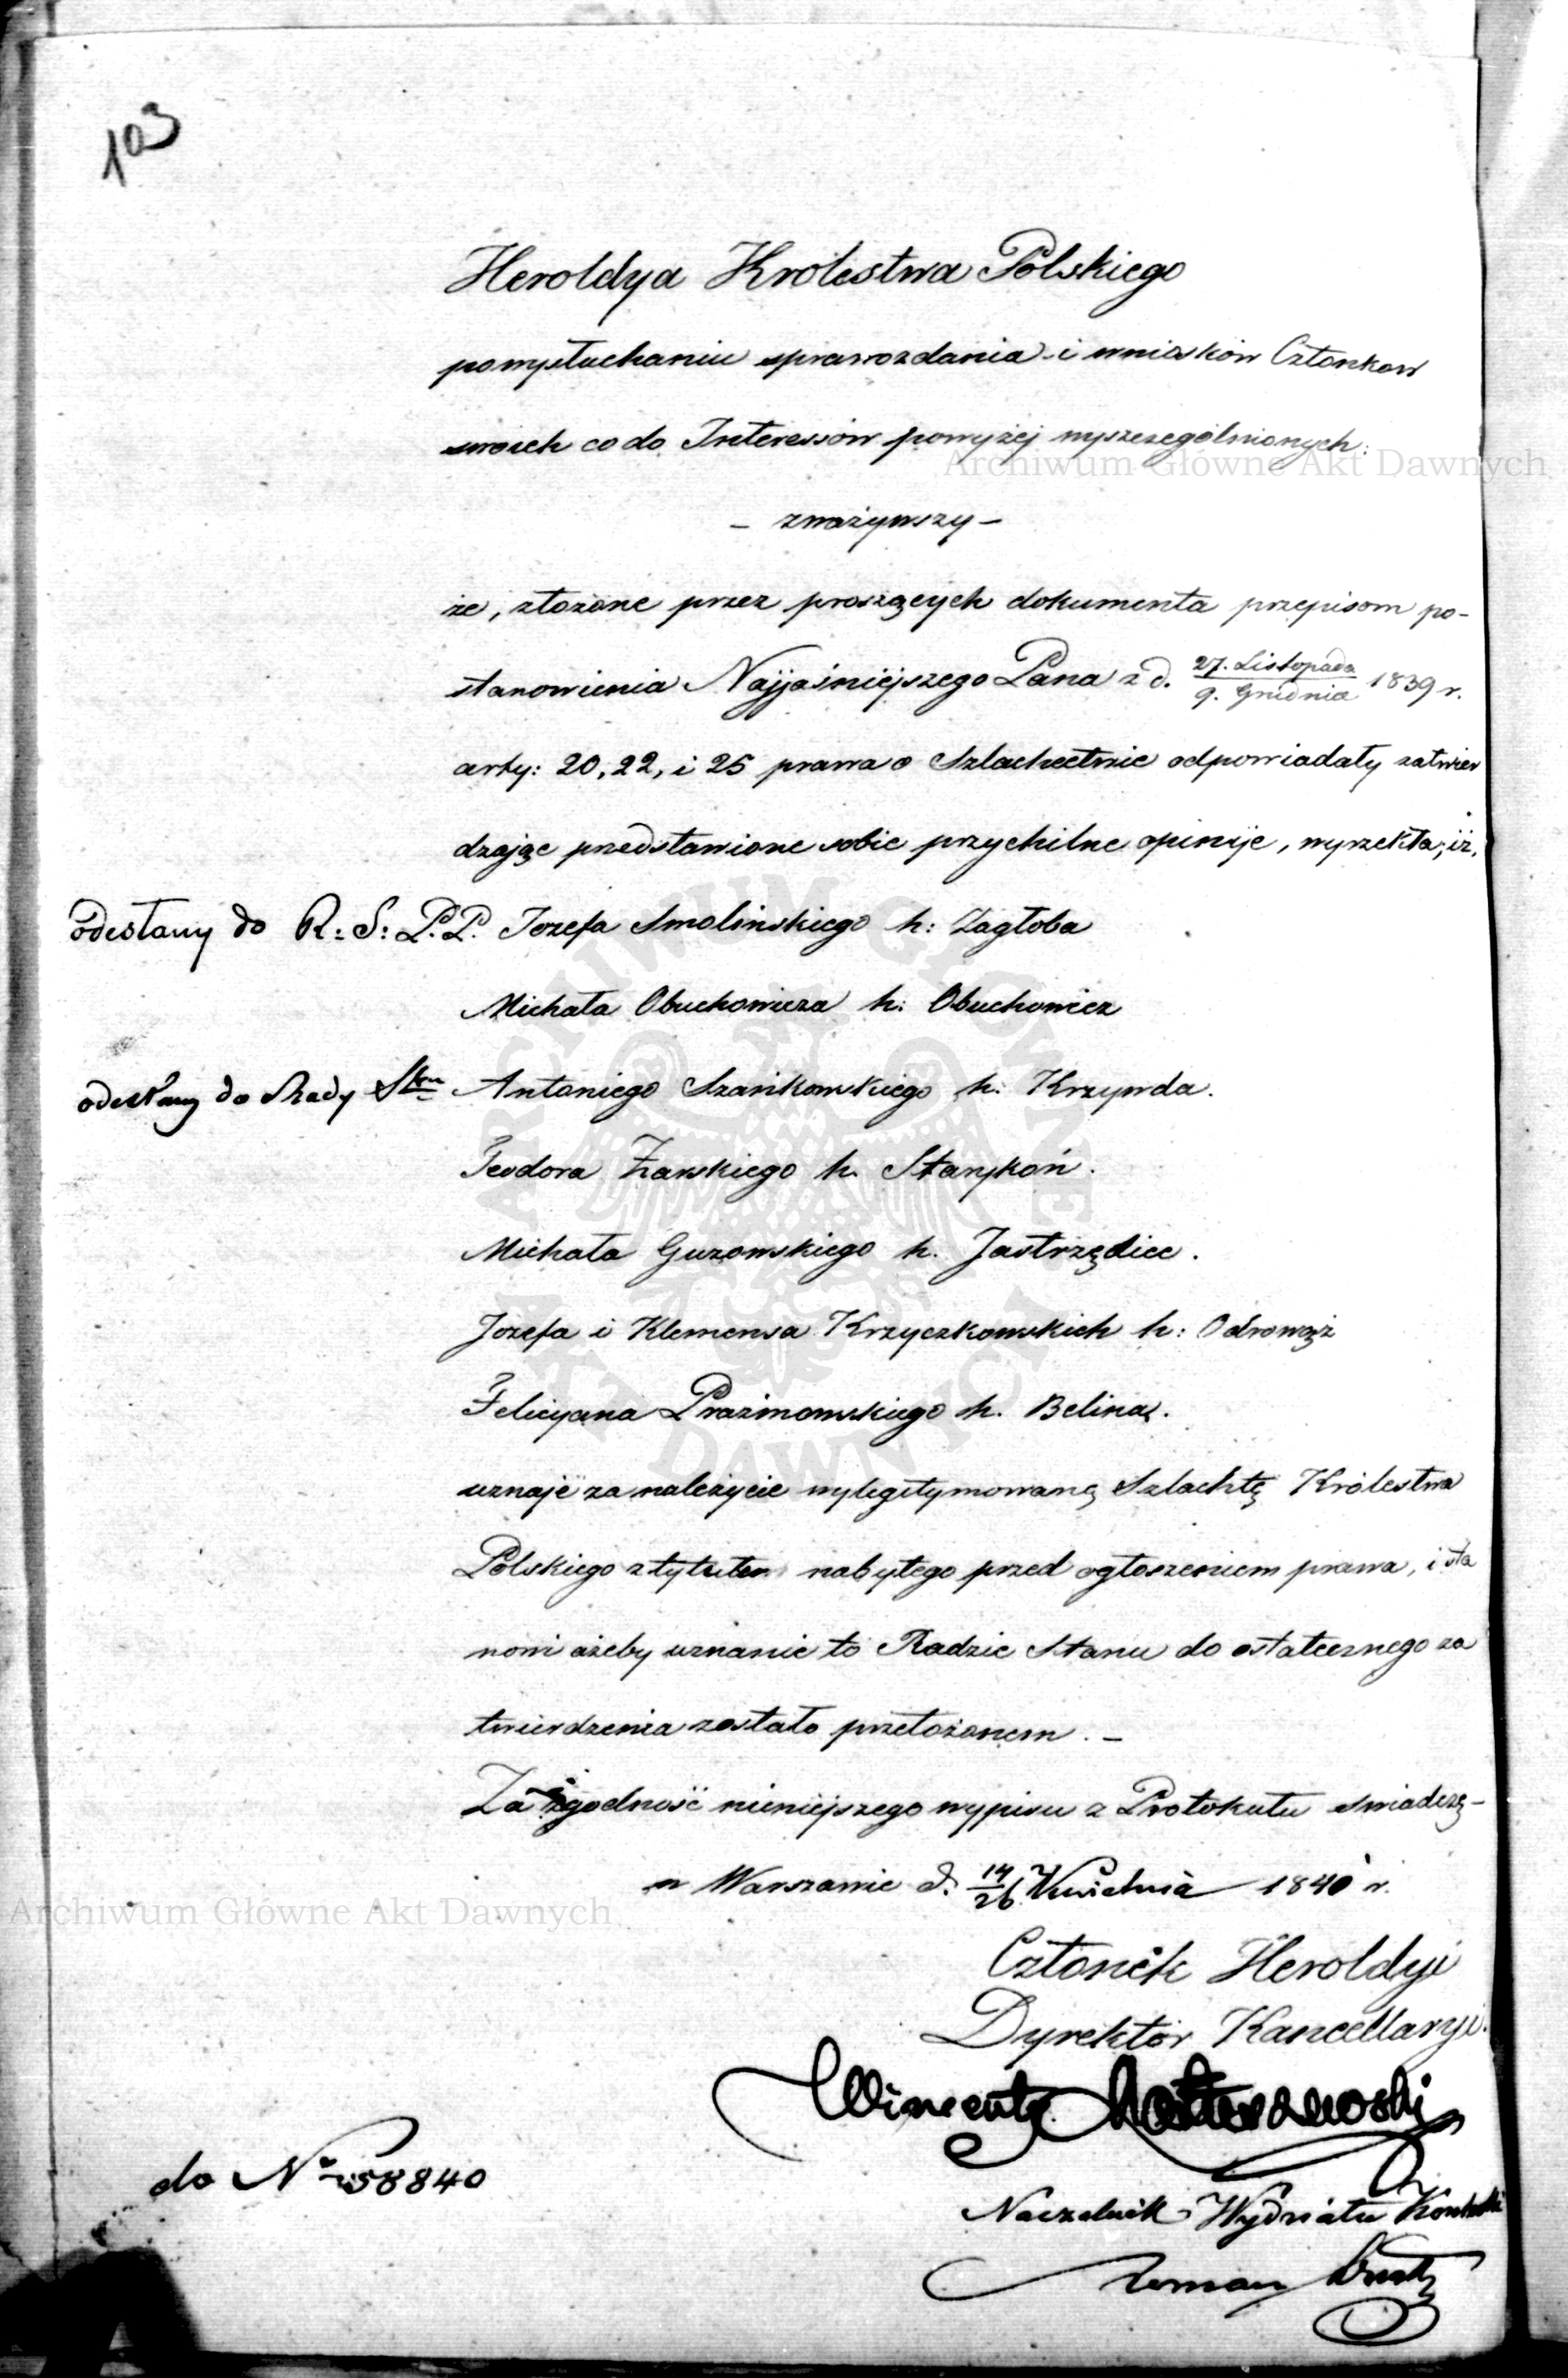 103
Heroldya Królestwa Polskiego
po wysłuchaniu sprawozdania i wniosków Członków
swoich co do Interessów powyżej wyszczególnionych:
Archiwum Główne Akt Dawnych
– zważywszy –
że, złożone przez proszących dokumenta przepisom po-
stanowienia Najjaśniejszego Pana z d. 27. Listopada / 9. Grudnia 1839 r.
arty: 20, 22, i 25 prawa o Szlachectwie odpowiadały zatwier
dzając przedstawione sobie przychilne opinije, wyrzekła, iż,
odesłany do R: S: P.P. Jozefa Smolinskiego h: Zagłoba
Michała Obuchowicza h: Obuchowicz
odesłany do Rady Stnu Antoniego Szańkowskiego h: Krzywda.
Teodora Żarskiego h. Starykoń.
Michała Guzowskiego h. Jastrzębiec.
Jozefa i Klemensa Krzyczkowskich h: Odrowąż
Felicyana Prażmowskiego h. Belina.
uznaje za należycie wylegitymowaną Szlachtę Królestwa
Polskiego z tytułem nabytego przed ogłoszeniem prawa, i sta
nowi ażeby uznanie to Radzie Stanu do ostatecznego za
twierdzenia zostało przełożonem. –
Za zgodność niniejszego wypisu z Protokułu świadczę –
w Warszawie d. 14/26 Kwietnia 1840 r.
Archiwum Główne Akt Dawnych
Członek Heroldyi
Dyrektor Kancellaryi.
Wincenty
do No 58840
Naczelnik Wydziału Kontrolli
Roman
ARCHIWUM GŁÓWNE AKT DAWNYCH